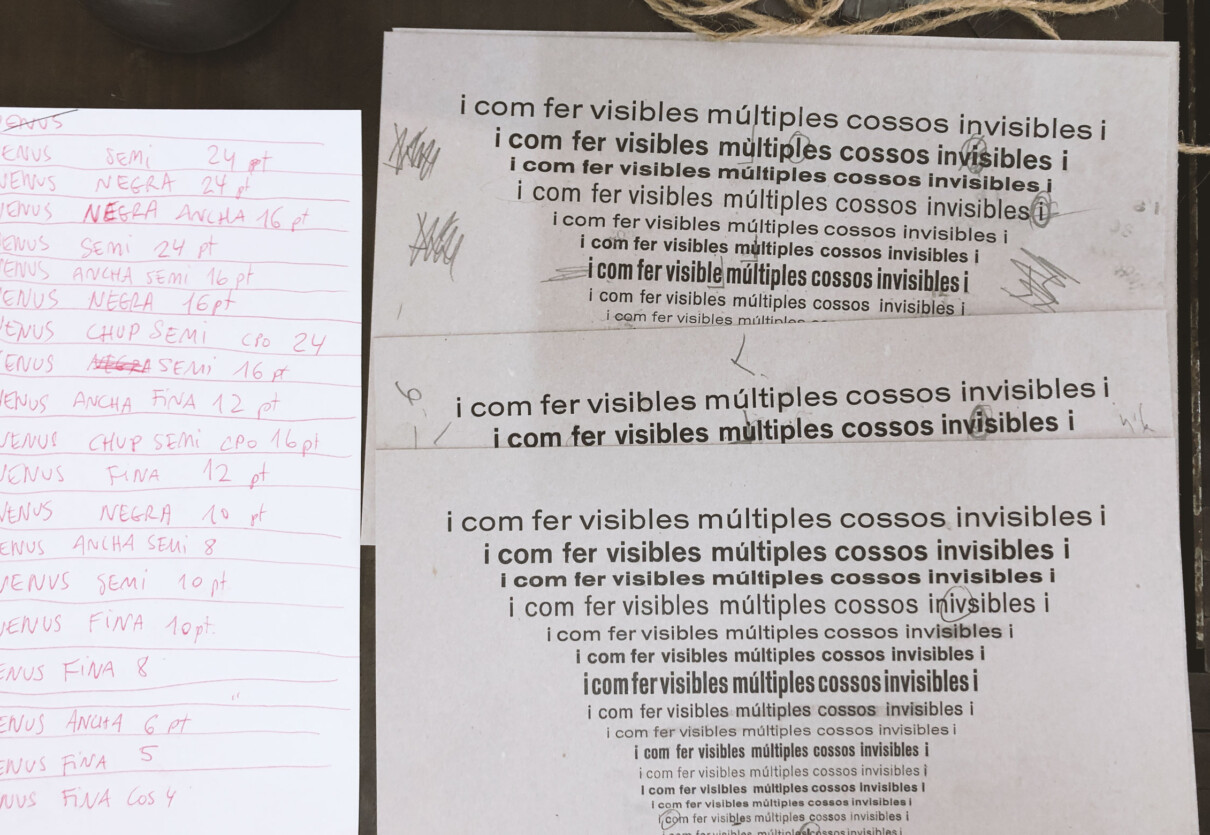 ENUS
ENUS SEMI 24 pt
VENUS NEGRA 24 pt
VENUS NEGRA ANCHA 16 pt
ENUS SEMI 24 pt
ENUS ANCHA SEMI 16 pt
ENUS NEGRA 16 pt
VENUS CHUP SEMI CPO 24
ENUS NEGRA SEMI 16 pt
ENUS ANCHA FINA 12 pt
VENUS CHUP SEMI CPO 16 pt
VENUS FINA 12 pt
VENUS NEGRA 10 pt
ENUS ANCHA SEMI 8
VENUS SEMI 10 pt
VENUS FINA 10 pt.
ENUS FINA 8
"
ENUS ANCHA 6 pt
ENUS FINA 5
NUS FINA COS 4
i com fer visibles múltiples cossos invisibles i
i com fer visibles mùltiples cossos invisibles i
i com fer visibles múltiples cossos invisibles i
i com fer visibles múltiples cossos invisibles i
i com fer visibles múltiples cossos invisibles i
i com fer visibles mùltiples cossos invisibles i
i com fer visible múltiples cossos invisibles i
i com fer visibles múltiples cossos invisibles i
i com fer visibles múltiples
i com fer visibles múltiples cossos invisibles i
i com fer visibles mùltiples cossos invisibles i
i com fer visibles múltiples cossos invisibles i
i com fer visibles múltiples cossos invisibles i
i com fer visibles múltiples cossos invisibles i
i com fer visibles múltiples cossos inivsibles i
i com fer visibles múltiples cossos invisibles i
i com fer visibles múltiples cossos invisibles i
i com fer visibles múltiples cossos invisibles i
i com fer visibles múltiples cossos invisibles i
i com fer visibles múltiples cossos invisibles i
i com fer visibles múltiples cossos invisibles i
i com fer visibles múltiples cossos invisibles i
i com fer visibles múltiples cossos invisibles i
i com fer visibles múltiples cossos invisibles i
i com fer visibles múltiples cossos invisibles i
i com fer visibles múltiples cossos invisibles i